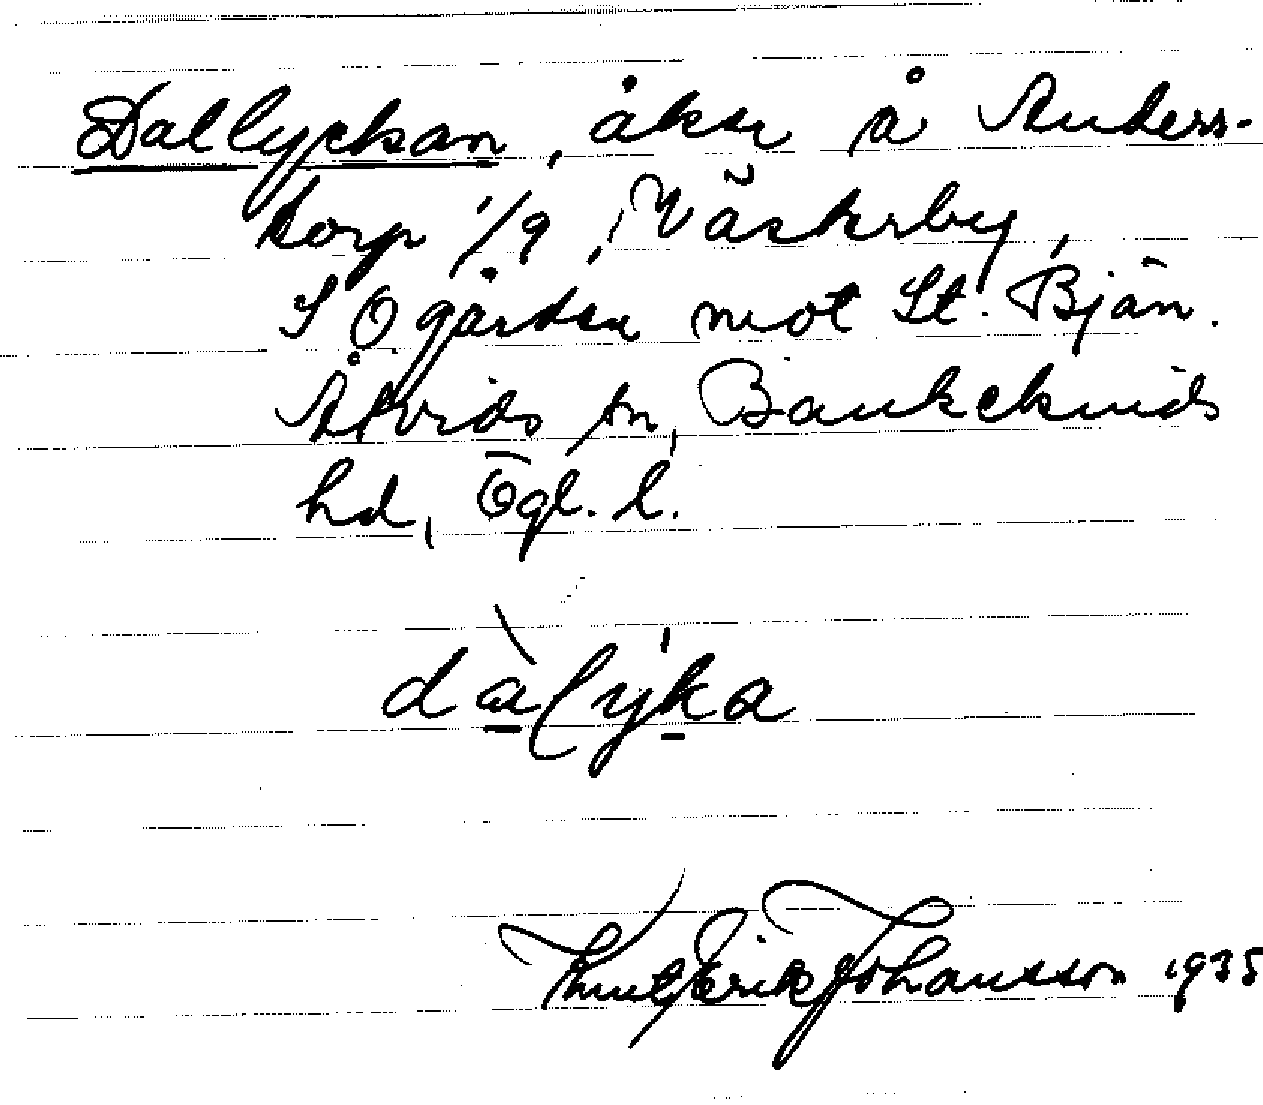 Dallyckan, åker å Anders-
torp 1/9, Västerby,
I Ogärden mot St. Bjän.
Åtvids sn, Bankekinds
hd, Ögl. l.
dàlýka
Knut Erik Johansson 1935